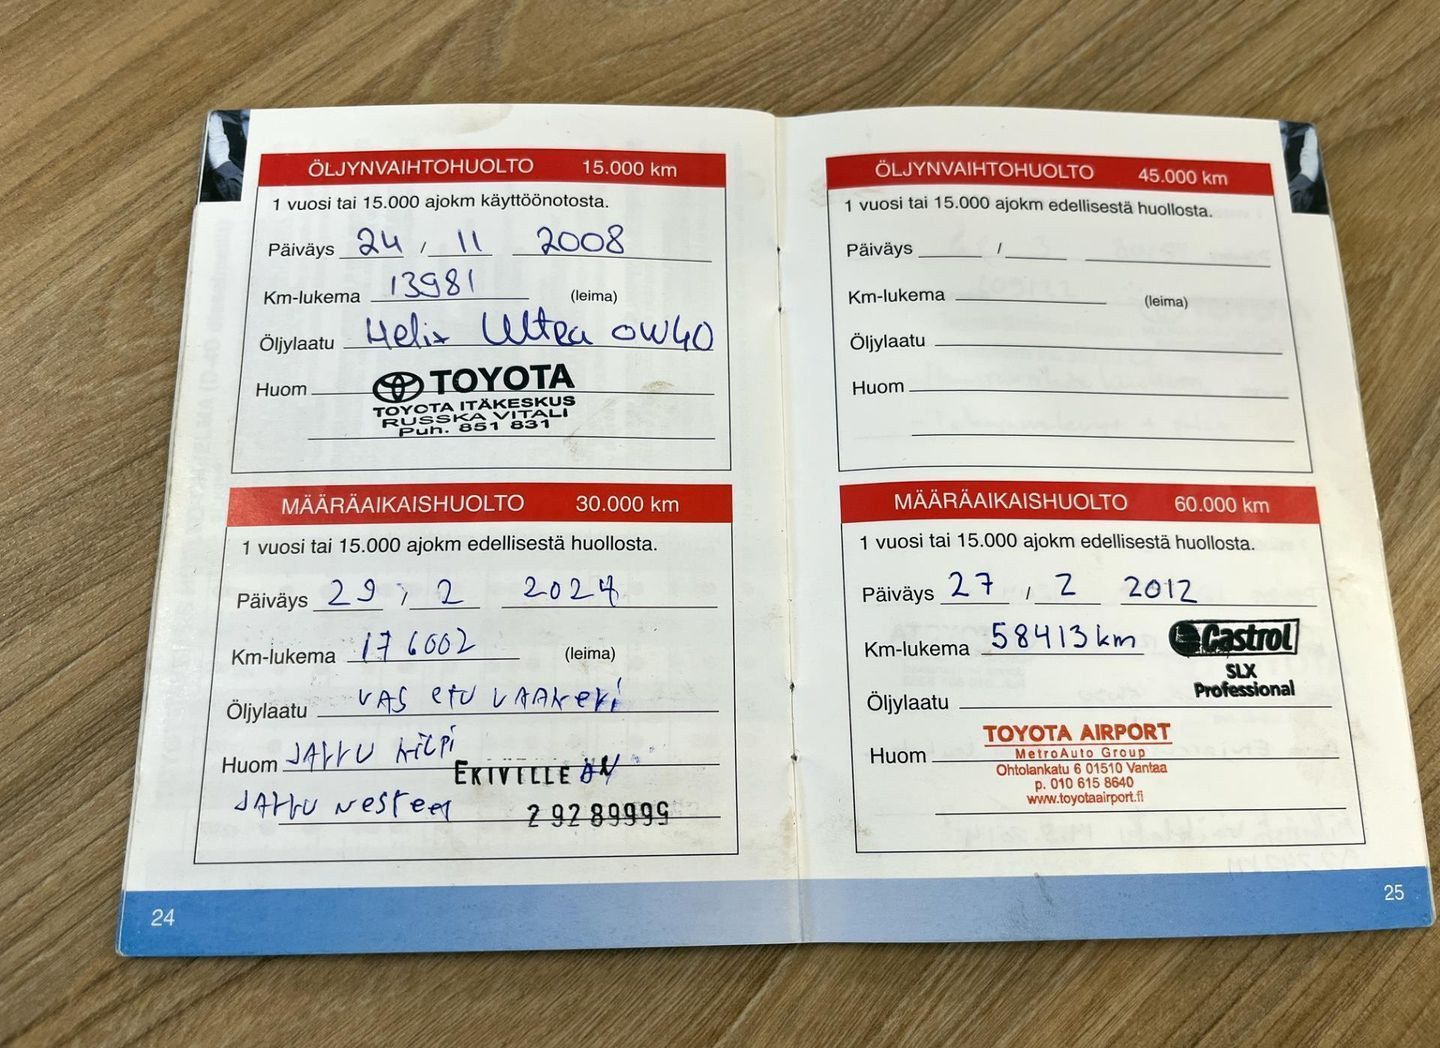 ÖLJYNVAIHTOHUOLTO 15.000 km
1 vuosi tai 15.000 ajokm käyttöönotosta.
Päiväys 24 / 11 2008
Km-lukema 13981 (leima)
Öljylaatu Helix Ultra 0W40
Huom
TOYOTA
TOYOTA ITÄKESKUS
RUSSKA VITALI
Puh. 851 831
MÄÄRÄAIKAISHUOLTO 30.000 km
1 vuosi tai 15.000 ajokm edellisestä huollosta.
Päiväys 29 / 2 2024
Km-lukema 176002 (leima)
Öljylaatu VAS ETU
Huom JARRU KILPI
EKIVILLE
JARRU NESTEET
29289999
24
ÖLJYNVAIHTOHUOLTO 45.000 km
1 vuosi tai 15.000 ajokm edellisestä huollosta.
Päiväys /
Km-lukema (leima)
Öljylaatu
Huom
MÄÄRÄAIKAISHUOLTO 60.000 km
1 vuosi tai 15.000 ajokm edellisestä huollosta.
Päiväys 27 / 2 2012
Km-lukema 58413 km
Castrol
SLX
Professional
Öljylaatu
Huom
TOYOTA AIRPORT
MetroAuto Group
Ohtolankatu 6 01510 Vantaa
p. 010 615 8640
www.toyotaairport.fi
25